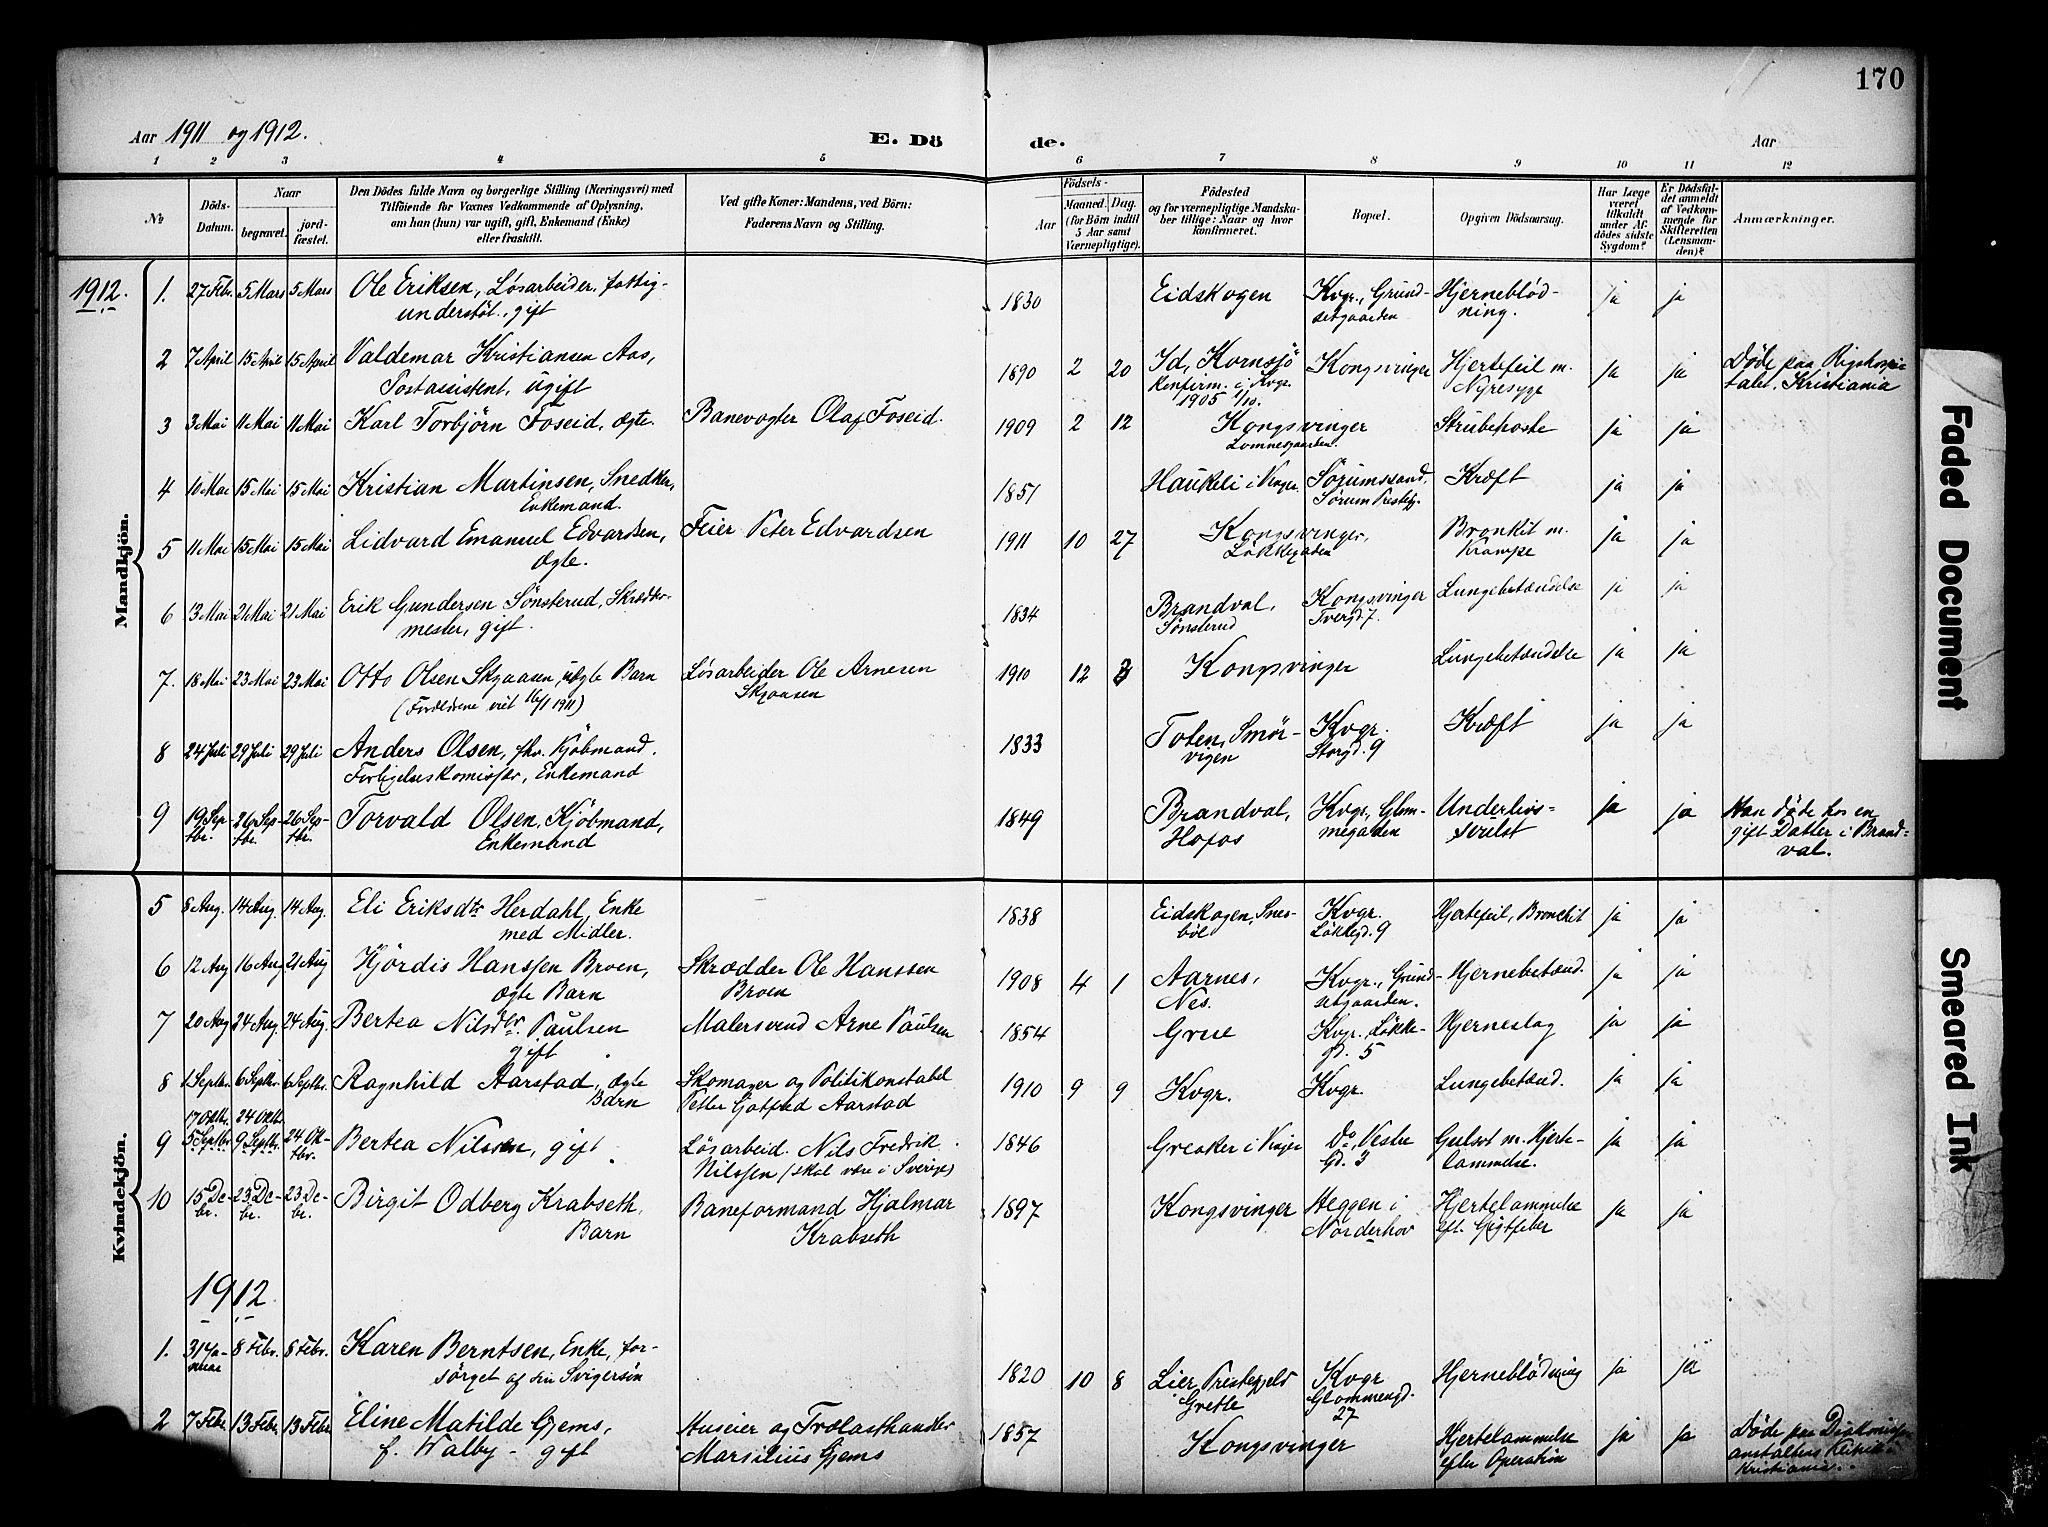 170
Aar 1911 og 1912. E. Dö de. Aar
1 2 3 4 5 6 7 8 9 10 11 12
№
Döds-Datum.
Naar
begravet.
jord-fæstet.
Den Dödes fulde Navn og borgerlige Stilling (Næringsvei) med
Tilföiende for Voxnes Vedkommende af Oplysning,
om han (hun) var ugift, gift, Enkemand (Enke)
eller fraskilt.
Ved gifte Koner: Mandens, ved Börn:
Faderens Navn og Stilling.
Födsels-
Aar
Maaned. Dag.
(for Börn indtil
5 Aar samt
Værnepligtige).
Födested
og for værnepligtige Mandska-
ber tillige: Naar og hvor
konfirmeret.
Bopæl.
Opgiven Dödsaarsag.
Har Læge
været
tilkaldt
under Af-
dödes sidste
Sygdom?
Er Dödsfal-
det anmeldt
af Vedkom-
mende for
Skifteretten
(Lensman-
den)?
Anmærkninger.
Mandkjön.
1912. 1. 27 Febr. 5 Mars 5 Mars Ole Eriksen, Løsarbeider, fattig- 1830 Eidskogen Kvgr., Grund- Hjerneblød- ja ja
understøt., gift setgaarden ning.
2 7 April 15 April 15 April Valdemar Kristiansen Aas, 1890 2 20 Id, Kornsjö Kongsvinger Hjertefeil m. ja ja Døde paa Rigshospi-
Postassistent, ugift Konfirm. i Kvgr. Nyresyge talet, Kristiania
1905 1/10.
3 3 Mai 11 Mai 11 Mai Karl Torbjörn Foseid, ægte. Banevogter Olaf Foseid. 1909 2 12 Kongsvinger Strubehoste ja ja
Lomnesgaarden.
4 10 Mai 15 Mai 15 Mai Kristian Martinsen, Snedker, 1851 Haukeli i Vinger Sørumssand, Kræft ja ja
Enkemand. Sørum Prestegj.
5 11 Mai 15 Mai 15 Mai Lidvard Emanuel Edvardsen, Feier Peter Edvardsen 1911 10 27 Kongsvinger, Bronkit m. ja ja
Ægte. Løkkegaden Krampe
6 13 Mai 21 Mai 21 Mai Erik Gundersen Sønsterud, Skrædder- 1834 Brandval, Kongsvinger Lungebetændelse ja ja
mester, gift. Sønsterud Tvergd 7.
7. 18 Mai 23 Mai 23 Mai Otto Olsen Skjaasen, uægte Barn Løsarbeider Ole Arnesen 1910 12 Kongsvinger Lungebetændelse ja ja
(Forældrene viet 16/1 1911) Skjaasen
8 24 Juli 29 Juli 29 Juli Anders Olsen, fhv. Kjøbmand. 1833 Toten, Smör- Kvgr. Kræft ja ja
Forligelseskomissær, Enkemand vigen Storgd. 9
9 19 Sep- 26 Sep- 26 Sep- Torvald Olsen, Kjöbmand, 1849 Brandval, Kvgr., Glom- Underlivs- ja ja Han døde hos en
tbr. tbr. tbr. Enkemand Hofos megaden svulst gift Datter i Brand-
val.
Kvindekjön.
5 8 Aug. 14 Aug. 14 Aug. Eli Eriksdtr Herdahl, Enke 1838 Eidskogen, Snes- Kvgr. Hjertefeil, Bronchit ja ja
med Midler. böl Løkkegd. 9
6 12 Aug 16 Aug 21 Aug Hjördis Hanssen Broen, Skrædder Ole Hanssen 1908 4 1 Aarnes, Kvgr., Grund- Hjernebetænd. ja ja
ægte Barn Broen Nes. setgaarden.
7 20 Aug 24 Aug. 24 Aug. Bertea Nilsdtr. Paulsen Malersvend Arne Paulsen 1854 Grue Kvgr. Løkke- Hjerneslag ja ja
gift gd. 5
8 1 Septbr. 6 Septbr. 6 Septbr. Ragnhild Aarstad, ægte Skomager og Politikonstabel 1910 9 9 Kvgr. Kvgr. Lungebetænd. ja ja
Barn Petter Gotfred Aarstad
17 Oktbr. 24 Oktbr.
9 5 Septbr 9 Septbr. 24 Ok- Bertea Nilssen, gift Løsarbeid. Nils Fredrik 1846 Greaker i Vinger Do, Vestre Gulsot m. Hjerte- ja ja
tbr. Nilssen (skal være i Sverige) Gd. 3 lammelse.
10 15 De- 23 De- 23 De- Birgit Odberg Krabseth, Baneformand Hjalmar 1897 Kongsvinger Heggen i Hjertelammelse ja ja
br. br. br. Barn Krabseth Norderhov eft. Gigtfeber
1912.
1. 31 Ja- 8 Febr. 8 Febr. Karen Berntsen, Enke, for- 1820 10 8 Lier Prestegjeld Kvgr Hjerneblødning ja ja
nuar sörget af sin Svigersön Grette Glommengd.
27
2 7 Febr 13 Febr. 13 Febr Eline Matilde Gjems, Huseier og Trælasthandler 1857 Kongsvinger Hjertelammelse ja ja Døde paa Diakonisse-
f. Walby - gift Marsilius Gjems efter Operation anstaltens Klinik i
Kristiania.
Faded Document
Smeared Ink